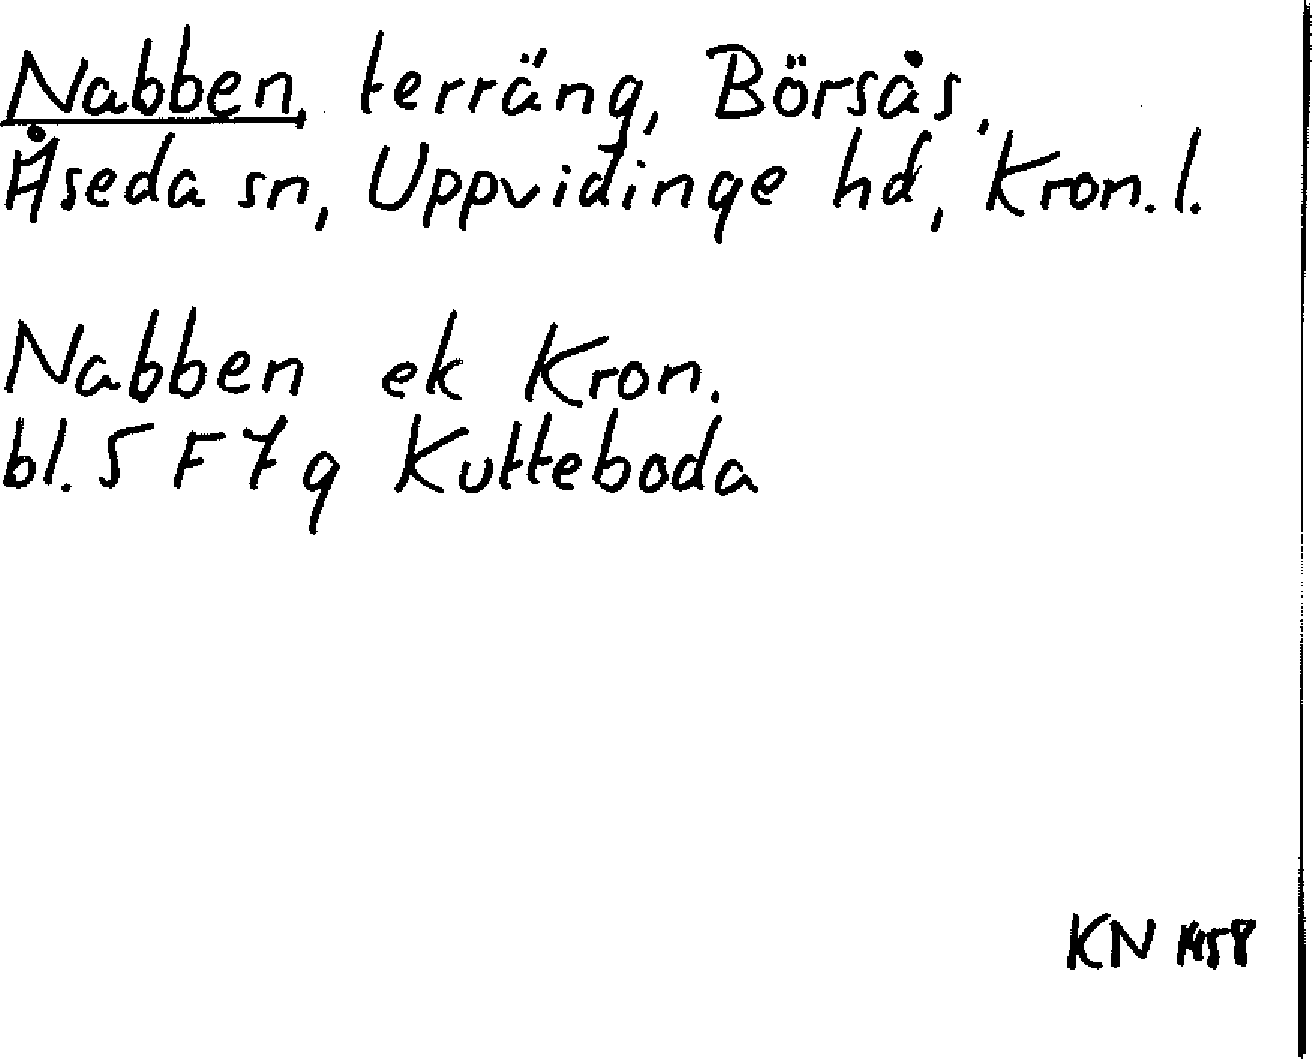 Nabben, terräng, Börsås,
Åseda sn, Uppvidinge hd, Kron. l.
Nabben ek Kron.
bl. 5 F 7 g Kutteboda
KN